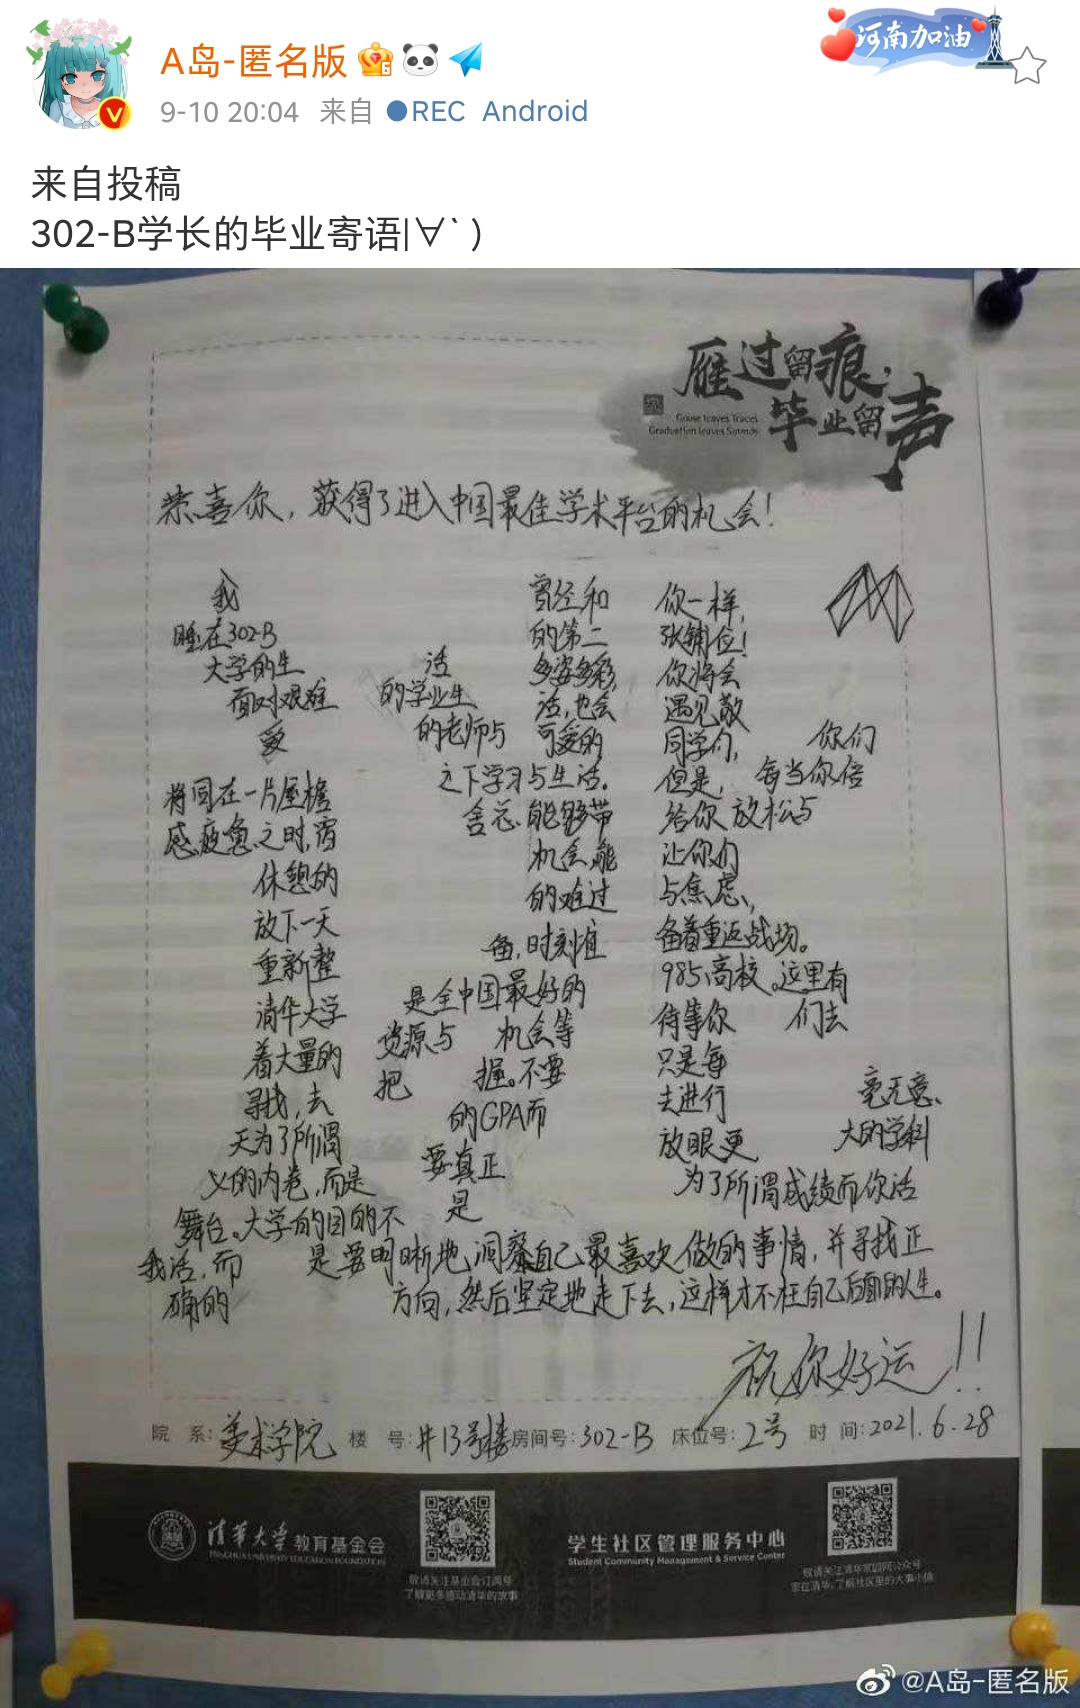 A岛-匿名版
9-10 20:04 来自 REC Android
河南加油
来自投稿
302-B学长的毕业寄语|∀` )
雁过留痕,
毕业留声
Goose leaves Traces
Graduation leaves Sounds
恭喜你,获得了进入中国最佳学术平台的机会!
我 曾经和 你一样,
睡在302-B 的第二 张铺位!
大学的生 活 多姿多彩, 你将会
面对艰难 的学业生 活,也会 遇见敬
爱 的老师与 可爱的 同学们, 你们
将同在一片屋檐 之下学习与生活. 但是, 每当你倍
感疲惫之时,宿 舍总能够带 给你放松与
休憩的 机会,能 让你们
放下一天 的难过 与焦虑,
重新整 备,时刻准 备着重返战场。
清华大学 是全中国最好的 985高校。这里有
着大量的 资源与 机会等 待等你 们去
寻找,去 把 握。不要 只是每
天为了所谓 的GPA而 去进行 毫无意
义的内卷,而是 要真正 放眼更 大的学科
舞台。大学的目的不 是 为了所谓成绩而你活
我活,而 是要明晰地洞察自己最喜欢做的事情,并寻找正
确的 方向,然后坚定地走下去,这样才不枉自己后面的人生。
祝你好运!!
院 系: 美术学院 楼 号: #13号楼 房间号: 302-B 床位号: 2号 时 间: 2021.6.28
清华大学教育基金会
TSINGHUA UNIVERSITY EDUCATION FOUNDATION
敬请关注基金会订阅号
了解更多感动清华的故事
学生社区管理服务中心
Student Community Management & Service Center
敬请关注清华家园网公众号
家在清华,了解社区里的大事小情
@A岛-匿名版